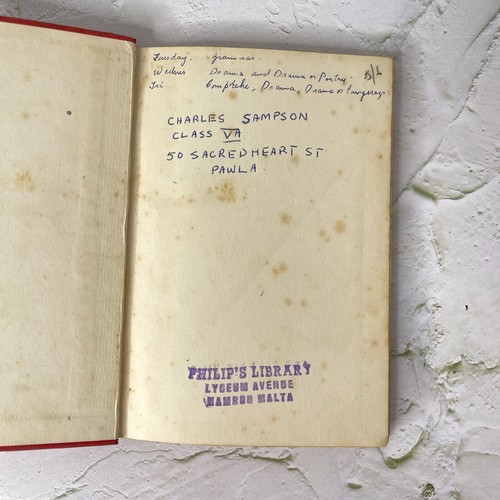 Tuesday. grammar.
Wednes Drama and Drama or Poetry.
Fri Comprehe, Drama, Drama or
CHARLES SAMPSON
CLASS VA
50 SACREDHEART ST
PAWLA.
PHILIP'S LIBRARY
LYCEUM AVENUE
HAMRUN MALTA